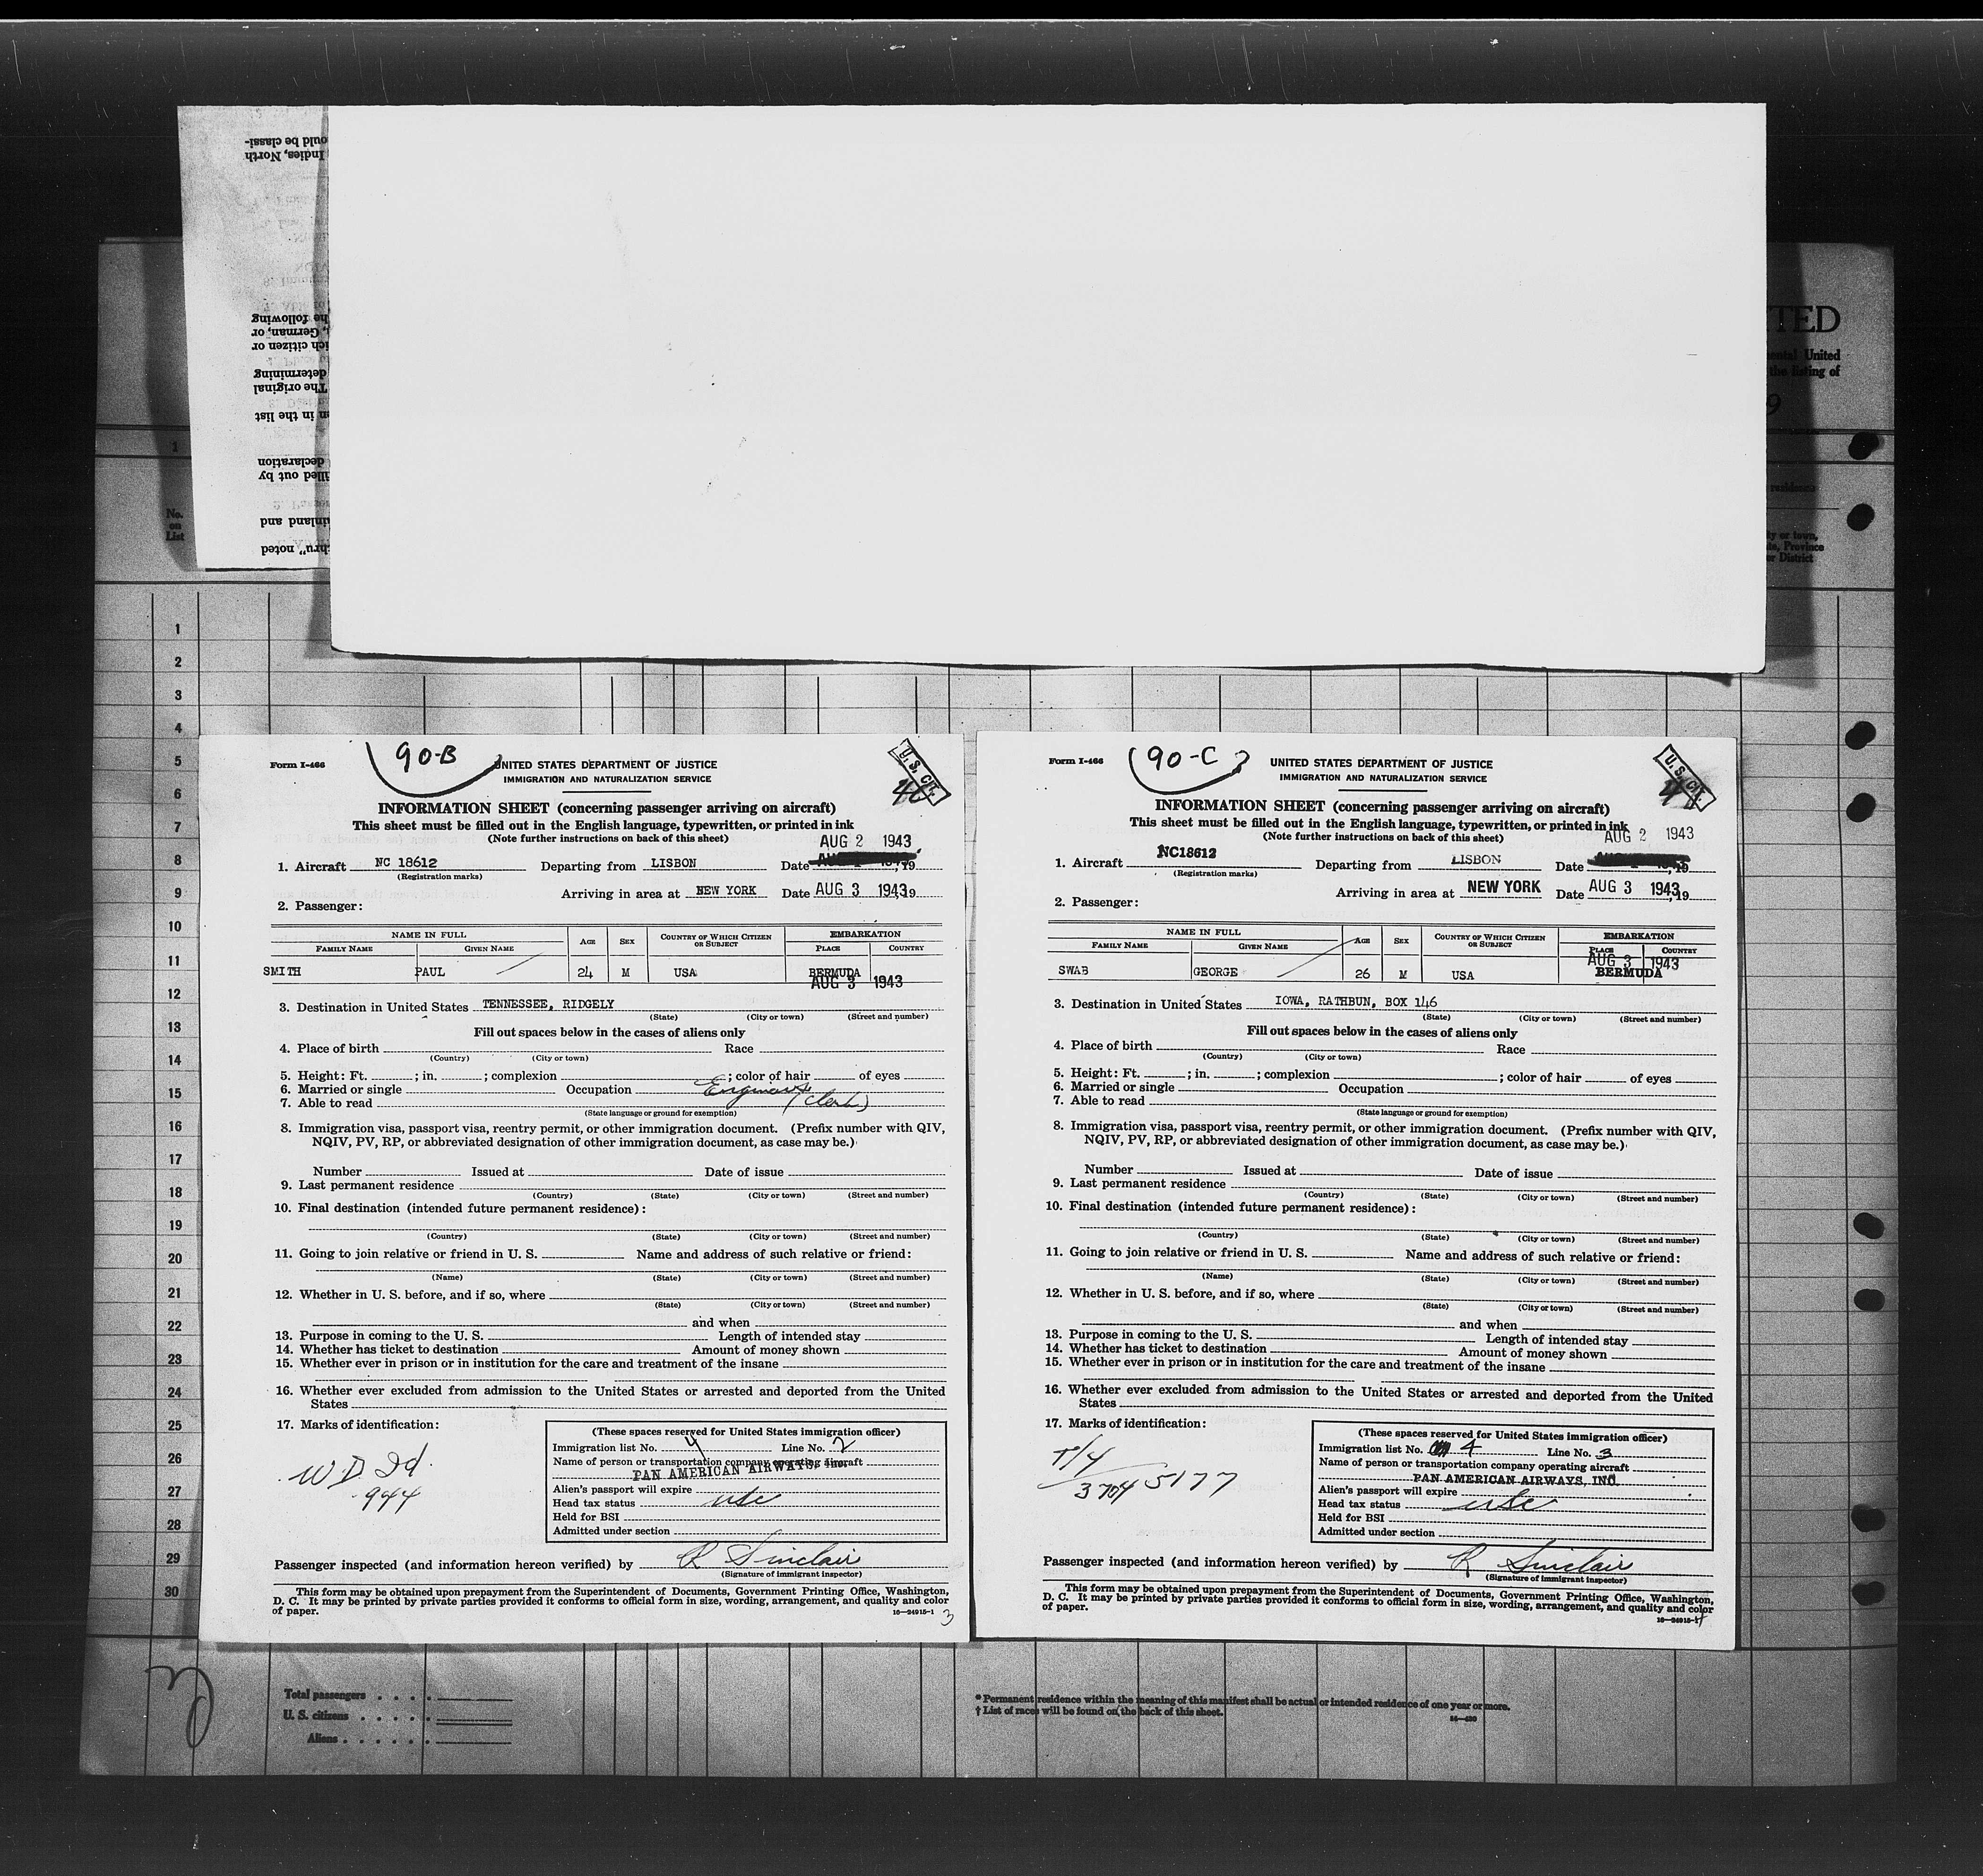 90-B
U. S. CIT.
Form I-466
UNITED STATES DEPARTMENT OF JUSTICE
IMMIGRATION AND NATURALIZATION SERVICE
INFORMATION SHEET (concerning passenger arriving on aircraft)
This sheet must be filled out in the English language, typewritten, or printed in ink
(Note further instructions on back of this sheet)
AUG 2 1943
1. Aircraft NC 18612 Departing from LISBON Date , 19
(Registration marks)
Arriving in area at NEW YORK Date AUG 3 1943, 19
2. Passenger:
NAME IN FULL AGE SEX COUNTRY OF WHICH CITIZEN OR SUBJECT EMBARKATION
FAMILY NAME GIVEN NAME PLACE COUNTRY
SMITH PAUL 24 M USA BERMUDA
AUG 3 1943
3. Destination in United States TENNESSEE, RIDGELY
(State) (City or town) (Street and number)
Fill out spaces below in the cases of aliens only
4. Place of birth Race
(Country) (City or town)
5. Height: Ft. ; in. ; complexion ; color of hair of eyes
6. Married or single Occupation
7. Able to read (Clerk)
(State language or ground for exemption)
8. Immigration visa, passport visa, reentry permit, or other immigration document. (Prefix number with QIV,
NQIV, PV, RP, or abbreviated designation of other immigration document, as case may be.)
Number Issued at Date of issue
9. Last permanent residence
(Country) (State) (City or town) (Street and number)
10. Final destination (intended future permanent residence):
(Country) (State) (City or town) (Street and number)
11. Going to join relative or friend in U. S. Name and address of such relative or friend:
(Name) (State) (City or town) (Street and number)
12. Whether in U. S. before, and if so, where
(State) (City or town) (Street and number)
and when
13. Purpose in coming to the U. S. Length of intended stay
14. Whether has ticket to destination Amount of money shown
15. Whether ever in prison or in institution for the care and treatment of the insane
16. Whether ever excluded from admission to the United States or arrested and deported from the United
States
17. Marks of identification:
W.D. Id.
944
(These spaces reserved for United States immigration officer)
Immigration list No. 4 Line No. 2
Name of person or transportation company operating aircraft
PAN AMERICAN AIRWAYS, Inc.
Alien's passport will expire
Head tax status usc
Held for BSI
Admitted under section
Passenger inspected (and information hereon verified) by R Sinclair
(Signature of immigrant inspector)
This form may be obtained upon prepayment from the Superintendent of Documents, Government Printing Office, Washington,
D. C. It may be printed by private parties provided it conforms to official form in size, wording, arrangement, and quality and color
of paper. 16—24915-1
3
90-C
U. S. CIT.
Form I-466
UNITED STATES DEPARTMENT OF JUSTICE
IMMIGRATION AND NATURALIZATION SERVICE
INFORMATION SHEET (concerning passenger arriving on aircraft)
This sheet must be filled out in the English language, typewritten, or printed in ink
(Note further instructions on back of this sheet)
AUG 2 1943
1. Aircraft NC18612 Departing from LISBON Date , 19
(Registration marks)
Arriving in area at NEW YORK Date AUG 3 1943, 19
2. Passenger:
NAME IN FULL AGE SEX COUNTRY OF WHICH CITIZEN OR SUBJECT EMBARKATION
FAMILY NAME GIVEN NAME PLACE COUNTRY
AUG 3 1943
SWAB GEORGE 26 M USA BERMUDA
3. Destination in United States IOWA, RATHBUN, BOX 146
(State) (City or town) (Street and number)
Fill out spaces below in the cases of aliens only
4. Place of birth Race
(Country) (City or town)
5. Height: Ft. ; in. ; complexion ; color of hair of eyes
6. Married or single Occupation
7. Able to read
(State language or ground for exemption)
8. Immigration visa, passport visa, reentry permit, or other immigration document. (Prefix number with QIV,
NQIV, PV, RP, or abbreviated designation of other immigration document, as case may be.)
Number Issued at Date of issue
9. Last permanent residence
(Country) (State) (City or town) (Street and number)
10. Final destination (intended future permanent residence):
(Country) (State) (City or town) (Street and number)
11. Going to join relative or friend in U. S. Name and address of such relative or friend:
(Name) (State) (City or town) (Street and number)
12. Whether in U. S. before, and if so, where
(State) (City or town) (Street and number)
and when
13. Purpose in coming to the U. S. Length of intended stay
14. Whether has ticket to destination Amount of money shown
15. Whether ever in prison or in institution for the care and treatment of the insane
16. Whether ever excluded from admission to the United States or arrested and deported from the United
States
17. Marks of identification:
T/4
3704 5177
(These spaces reserved for United States immigration officer)
Immigration list No. 4 Line No. 3
Name of person or transportation company operating aircraft
PAN AMERICAN AIRWAYS, INC.
Alien's passport will expire
Head tax status usc
Held for BSI
Admitted under section
Passenger inspected (and information hereon verified) by R Sinclair
(Signature of immigrant inspector)
This form may be obtained upon prepayment from the Superintendent of Documents, Government Printing Office, Washington,
D. C. It may be printed by private parties provided it conforms to official form in size, wording, arrangement, and quality and color
of paper. 16—24915-1
4
No.
on
List
1
1
2
3
4
5
6
7
8
9
10
11
12
13
14
15
16
17
18
19
20
21
22
23
24
25
26
27
28
29
30
Total passengers
U. S. citizens
Aliens
* Permanent residence within the meaning of this manifest shall be actual or intended residence of one year or more.
† List of races will be found on the back of this sheet.
United
the listing of
or town,
Province
or District